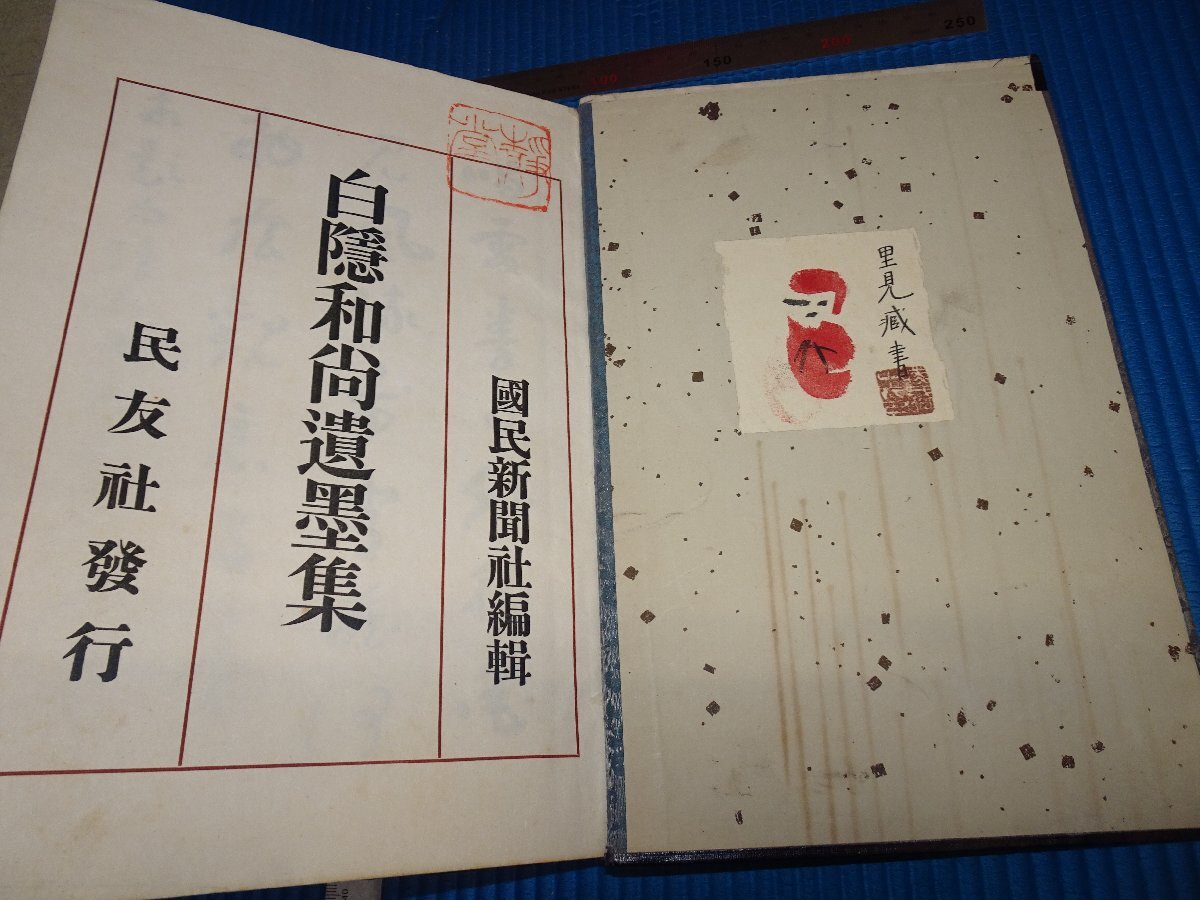 國民新聞社編輯
白隱和尚遺墨集
民友社發行
里見藏書
100
150
200
250